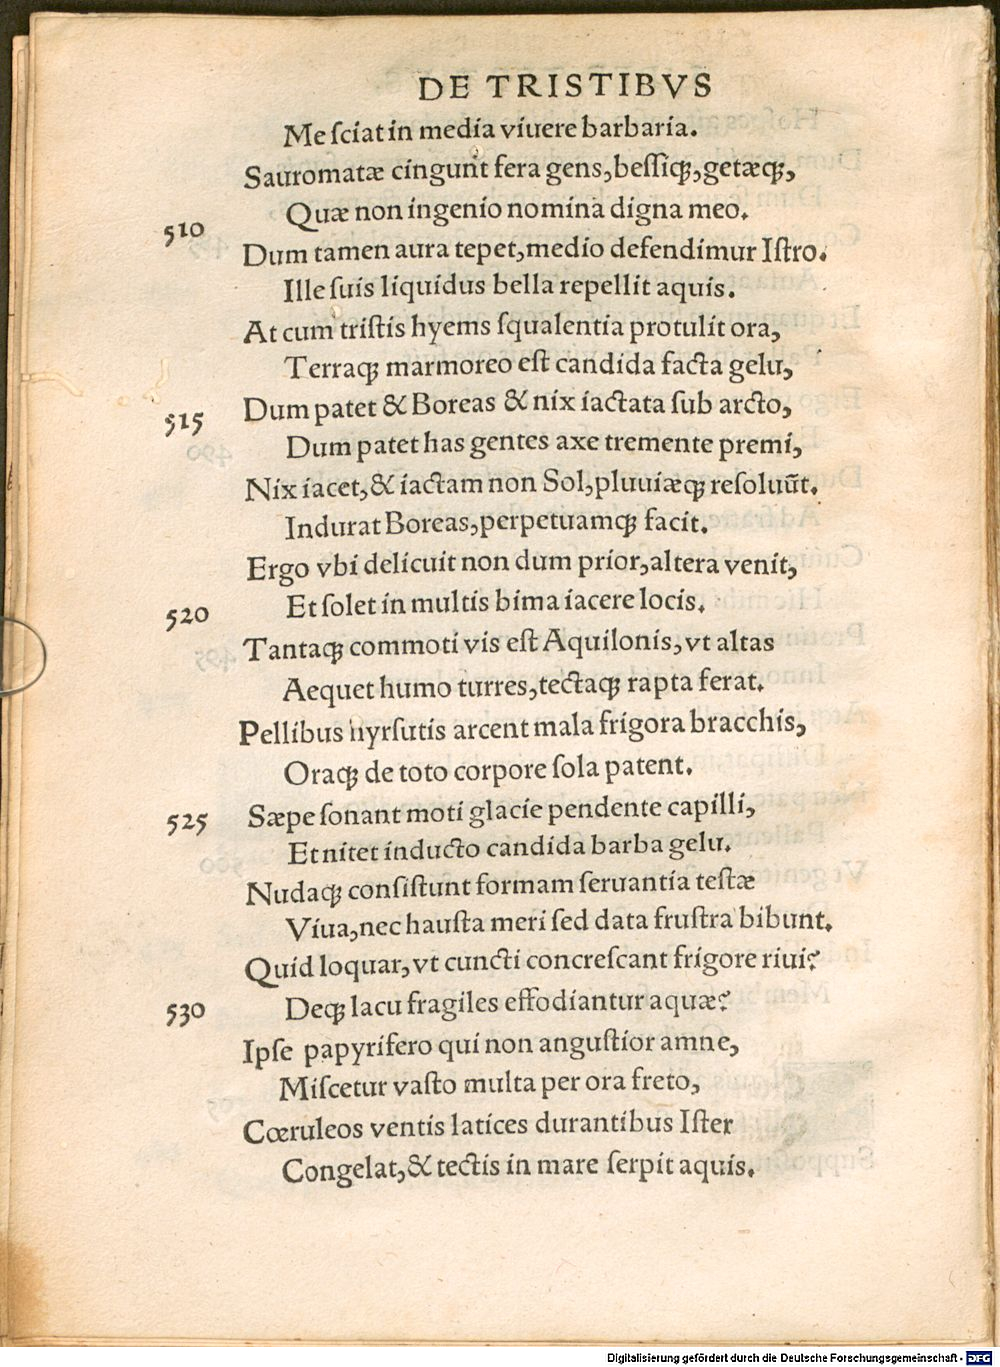 DE TRISTIBVS
Me ſciat in media viuere barbaria.
Sauromatæ cingunt fera gens, beſſiqꝫ, getæqꝫ,
Quæ non ingenio nomina digna meo.
510
Dum tamen aura tepet, medio defendimur Iſtro.
Ille ſuis liquidus bella repellit aquis.
At cum triſtis hyems ſqualentia protulit ora,
Terraqꝫ marmoreo eſt candida facta gelu,
515 Dum patet & Boreas & nix iactata ſub arcto,
Dum patet has gentes axe tremente premi,
Nix iacet, & iactam non Sol, pluuiæqꝫ reſoluūt.
Indurat Boreas, perpetuamqꝫ facit.
Ergo vbi delicuit non dum prior, altera venit,
520 Et ſolet in multis bima iacere locis.
Tantaqꝫ commoti vis eſt Aquilonis, vt altas
Aequet humo turres, tectaqꝫ rapta ferat.
Pellibus hyrſutis arcent mala frigora bracchis,
Oraqꝫ de toto corpore ſola patent.
525 Sæpe ſonant moti glacie pendente capilli,
Et nitet inducto candida barba gelu.
Nudaqꝫ conſiſtunt formam ſeruantia teſtæ
Viua, nec hauſta meri ſed data fruſtra bibunt.
Quid loquar, vt cuncti concreſcant frigore riui?
530 Deqꝫ lacu fragiles effodiantur aquæ?
Ipſe papyrifero qui non anguſtior amne,
Miſcetur vaſto multa per ora freto,
Cœruleos ventis latices durantibus Iſter
Congelat, & tectis in mare ſerpit aquis.
Digitalisierung gefördert durch die Deutsche Forschungsgemeinschaft - DFG